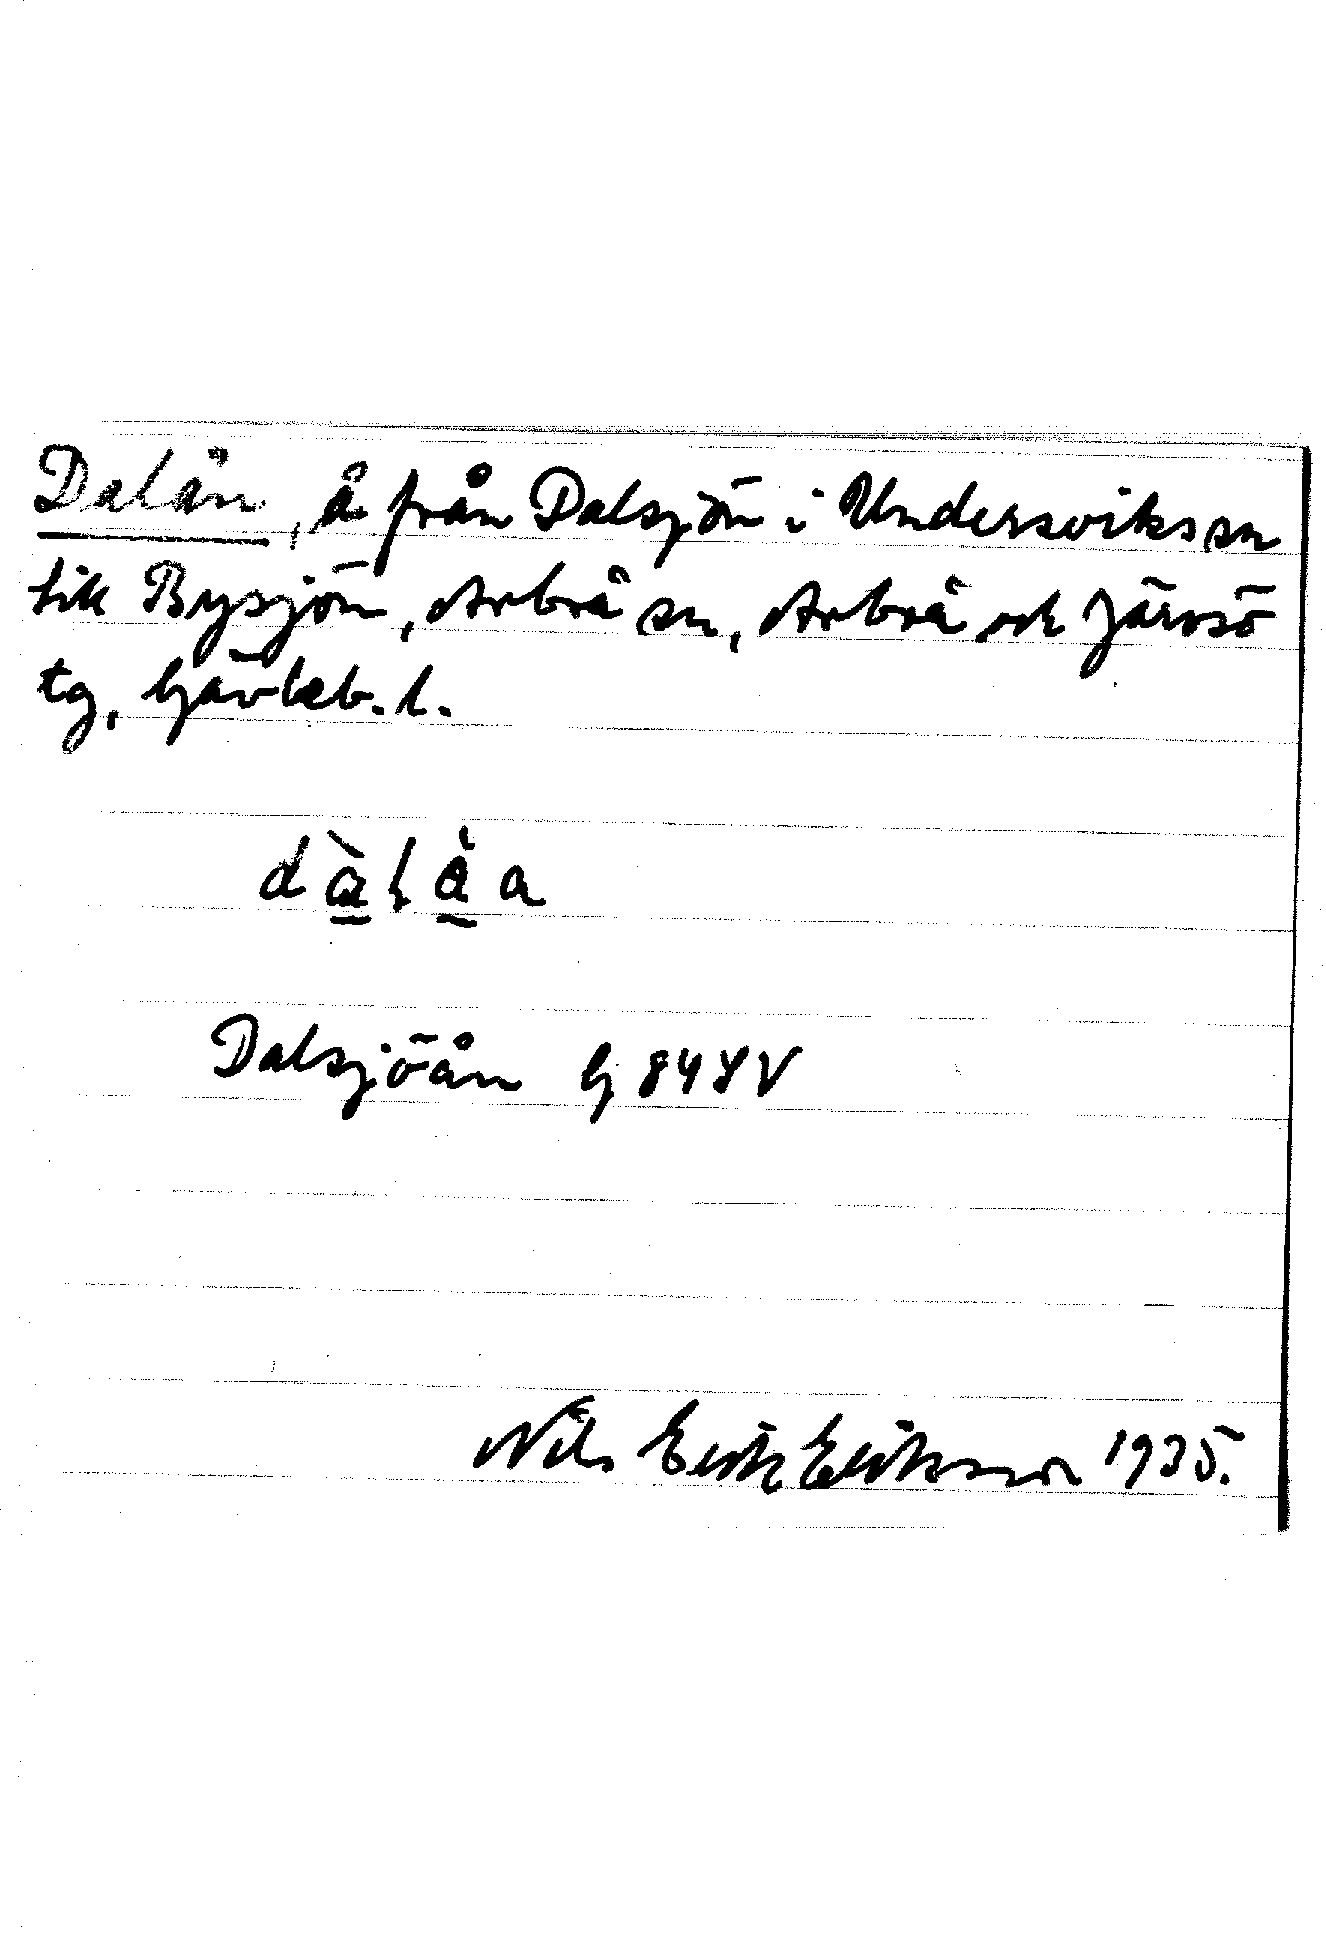 Dalån, å från Dalsjön i Undersviks sn
till Bysjön, Arbrå sn, Arbrå och Järvsö
tg, Gävleb. l.
Dalsjöån G 84 SV
Nils Erik Eriksson 1935.